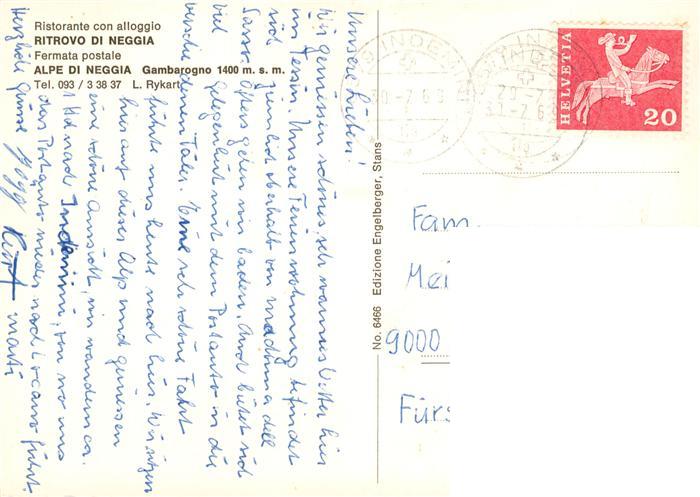 Ristorante con alloggio
RITROVO DI NEGGIA
Fermata postale
ALPE DI NEGGIA Gambarogno 1400 m. s. m.
Tel. 093 / 3 38 37 L. Rykart
Unsere Lieben!
Wir geniessen schönes, sehr warmes Wetter hier
im Tessin. Unsere Ferienwohnung befindet
sich ziemlich oberhalb von Madonna del
Sasso. Öfters gehen wir baden. Auch bietet sich
viel Gelegenheit mit dem Postauto in die
verschiedenen Täler. Eine sehr schöne Fahrt
führte uns heute nach hier. Wir sitzen
hier auf dieser Alp und geniessen
eine schöne Aussicht, wir wandern ca.
1 Std nach Indemini, von wo uns
das Postauto wieder nach Locarno führt.
Herzliche Grüsse
No. 6466 Edizione Engelberger, Stans
INDEMINI
HELVETIA
20
Fam
Mei
9000
Fürs